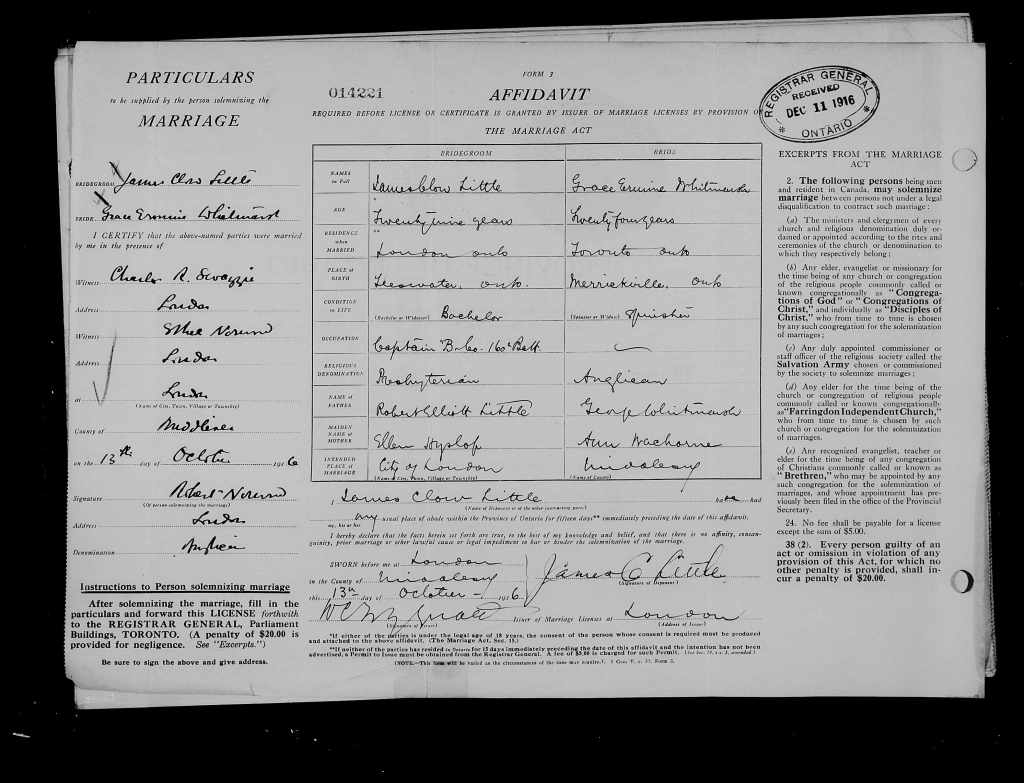 PARTICULARS
to be supplied by the person solemnizing the
MARRIAGE
BRIDEGROOM James Clow Little
BRIDE Grace Ermine Whitmarsh
I CERTIFY that the above-named parties were married
by me in the presence of
Witness Charles R.
Address London
Witness Ethel Norwood
Address London
at London
(Name of City, Town, Village or Township)
County of Middlesex
on the 13th day of October 1916
Signature Robert Norwood
(Of person solemnizing marriage)
Address London
Denomination Anglican
Instructions to Person solemnizing marriage
After solemnizing the marriage, fill in the
particulars and forward this LICENSE forthwith
to the REGISTRAR GENERAL, Parliament
Buildings, TORONTO. (A penalty of $20.00 is
provided for negligence. See "Excerpts.")
Be sure to sign the above and give address.
FORM 3
014221
AFFIDAVIT
REQUIRED BEFORE LICENSE OR CERTIFICATE IS GRANTED BY ISSUER OF MARRIAGE LICENSES BY PROVISION OF
THE MARRIAGE ACT
BRIDEGROOM BRIDE
NAMES in Full James Clow Little Grace Ermine Whitmarsh
AGE Twenty nine years Twenty four years
RESIDENCE when MARRIED London Ont Toronto Ont
PLACE of BIRTH Teeswater, Ont. Merrickville, Ont
CONDITION in LIFE (Bachelor or Widower) Bachelor (Spinster or Widow) Spinster
OCCUPATION Captain B. Co. 160th Batt.
RELIGIOUS DENOMINATION Presbyterian Anglican
NAME of FATHER Robert Elliott Little George Whitmarsh
MAIDEN NAME of MOTHER Ellen Hyslop Ann
INTENDED PLACE of MARRIAGE City of London Middlesex
(Name of City, Town, Village or Township) (Name of County)
I, James Clow Little ha ve had
(Name of Bridegroom or of the other contracting party)
my usual place of abode within the Province of Ontario for fifteen days** immediately preceding the date of this affidavit.
my, his or her
I hereby declare that the facts herein set forth are true, to the best of my knowledge and belief, and that there is no affinity, consan-
guinity, prior marriage or other lawful cause or legal impediment to bar or hinder the solemnization of the marriage.
SWORN before me at London
in the County of Middlesex
this 13th day of October 1916.
James C Little
(Signature of Deponent)
Issuer of Marriage Licenses at London
(Signature of Issuer) (Address of Issuer)
*If either of the parties is under the legal age of 18 years, the consent of the person whose consent is required must be produced
and attached to the above affidavit. (The Marriage Act, Sec. 15.)
**If neither of the parties has resided in Ontario for 15 days immediately preceding the date of this affidavit and the intention has not been
advertised, a Permit to Issue must be obtained from the Registrar General. A fee of $5.00 is charged for such Permit.
(NOTE.—This form will be varied as the circumstances of the case may require.)
REGISTRAR GENERAL
RECEIVED
DEC 11 1916
ONTARIO
EXCERPTS FROM THE MARRIAGE
ACT
2. The following persons being men
and resident in Canada, may solemnize
marriage between persons not under a legal
disqualification to contract such marriage:
(a) The ministers and clergymen of every
church and religious denomination duly or-
dained or appointed according to the rites and
ceremonies of the church or denomination to
which they respectively belong;
(b) Any elder, evangelist or missionary for
the time being of any church or congregation
of the religious people commonly called or
known congregationally as "Congrega-
tions of God" or "Congregations of
Christ," and individually as "Disciples of
Christ," who from time to time is chosen
by any such congregation for the solemnization
of marriages;
(c) Any duly appointed commissioner or
staff officer of the religious society called the
Salvation Army chosen or commissioned
by the society to solemnize marriages;
(d) Any elder for the time being of the
church or congregation of religious people
commonly called or known congregationally
as "Farringdon Independent Church,"
who from time to time is chosen by such
church or congregation for the solemnization
of marriages.
(e) Any recognized evangelist, teacher or
elder for the time being of any congregation
of Christians commonly called or known as
"Brethren," who may be appointed by any
such congregation for the solemnization of
marriages, and whose appointment has pre-
viously been filed in the office of the Provincial
Secretary.
24. No fee shall be payable for a license
except the sum of $5.00.
38 (2). Every person guilty of an
act or omission in violation of any
provision of this Act, for which no
other penalty is provided, shall in-
cur a penalty of $20.00.